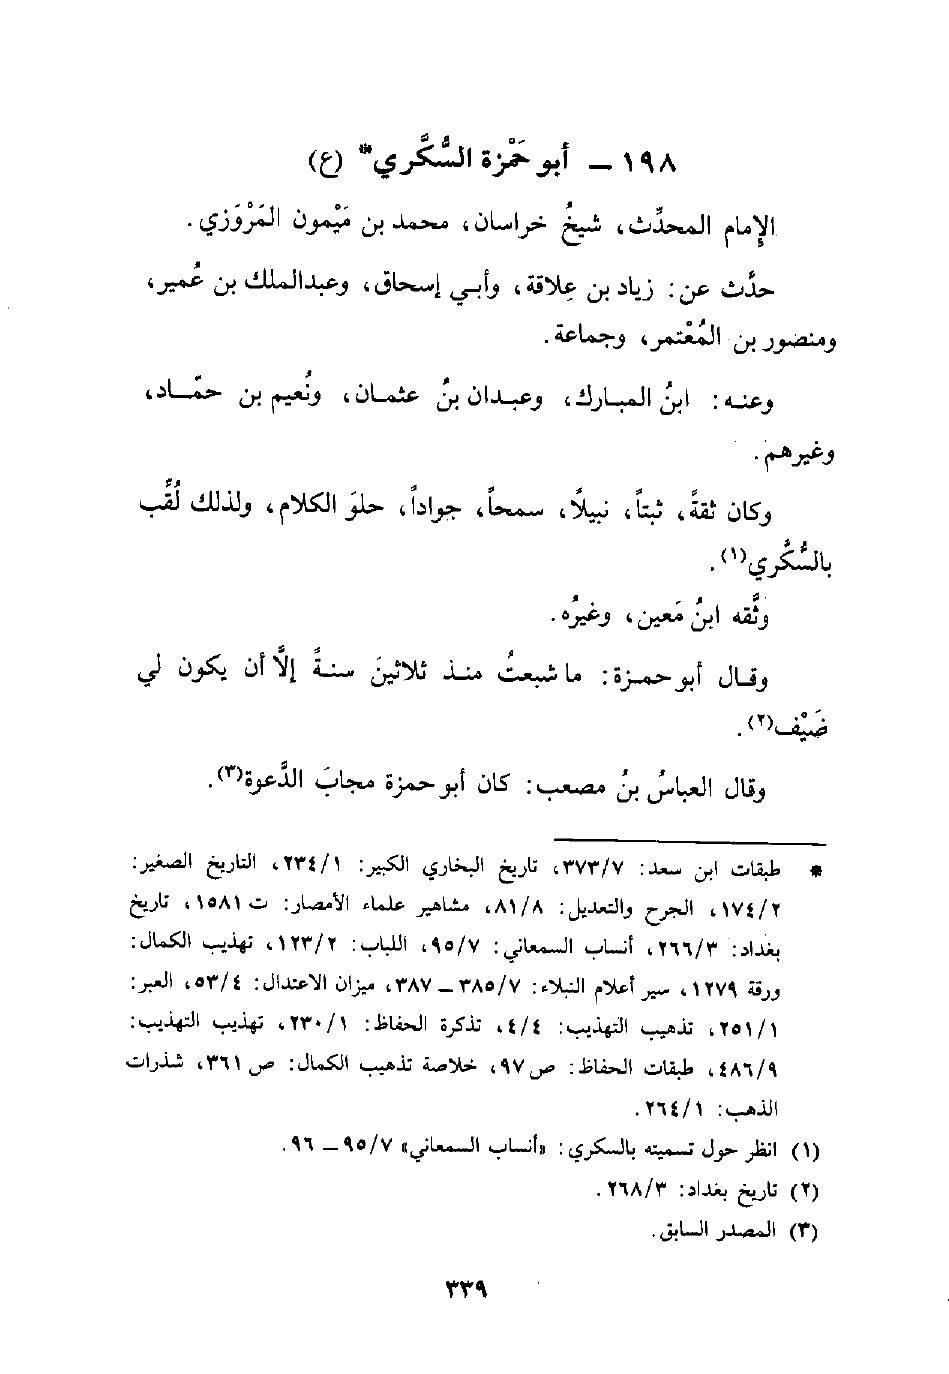 ١٩٨ – أبو حَمْزة السُّكَّري* (ع)
الإِمام المحدِّث، شيخُ خراسان، محمد بن مَيْمون المَرْوَزي.
حدَّث عن: زياد بن عِلاقة، وأبي إسحاق، وعبدالملك بن عُمير،
ومنصور بن المُعْتمر، وجماعة.
وعنه: ابنُ المبارك، وعبدان بنُ عثمان، ونُعيم بن حمّاد،
وغيرهم.
وكان ثقةً، ثبتاً، نبيلًا، سمحاً، جواداً، حلوَ الكلام، ولذلك لُقِّب
بالسُّكَّري(١).
وثَّقه ابنُ مَعين، وغيرُه.
وقال أبو حمزة: ما شبعتُ منذ ثلاثينَ سنةً إلَّا أن يكون لي
ضَيْف(٢).
وقال العباسُ بنُ مصعب: كان أبو حمزة مجابَ الدَّعوة(٣).
* طبقات ابن سعد: ٣٧٣/٧، تاريخ البخاري الكبير: ٢٣٤/١، التاريخ الصغير:
١٧٤/٢، الجرح والتعديل: ٨١/٨، مشاهير علماء الأمصار: ت ١٥٨١، تاريخ
بغداد: ٢٦٦/٣، أنساب السمعاني: ٩٥/٧، اللباب: ١٢٣/٢، تهذيب الكمال:
ورقة ١٢٧٩، سير أعلام النبلاء: ٣٨٥/٧ – ٣٨٧، ميزان الاعتدال: ٥٣/٤، العبر:
٢٥١/١، تذهيب التهذيب: ٤/٤، تذكرة الحفاظ: ٢٣٠/١، تهذيب التهذيب:
٤٨٦/٩، طبقات الحفاظ: ص ٩٧، خلاصة تذهيب الكمال: ص ٣٦١، شذرات
الذهب: ٢٦٤/١.
(١) انظر حول تسميته بالسكري: «أنساب السمعاني» ٩٥/٧ – ٩٦.
(٢) تاريخ بغداد: ٢٦٨/٣.
(٣) المصدر السابق.
٣٣٩